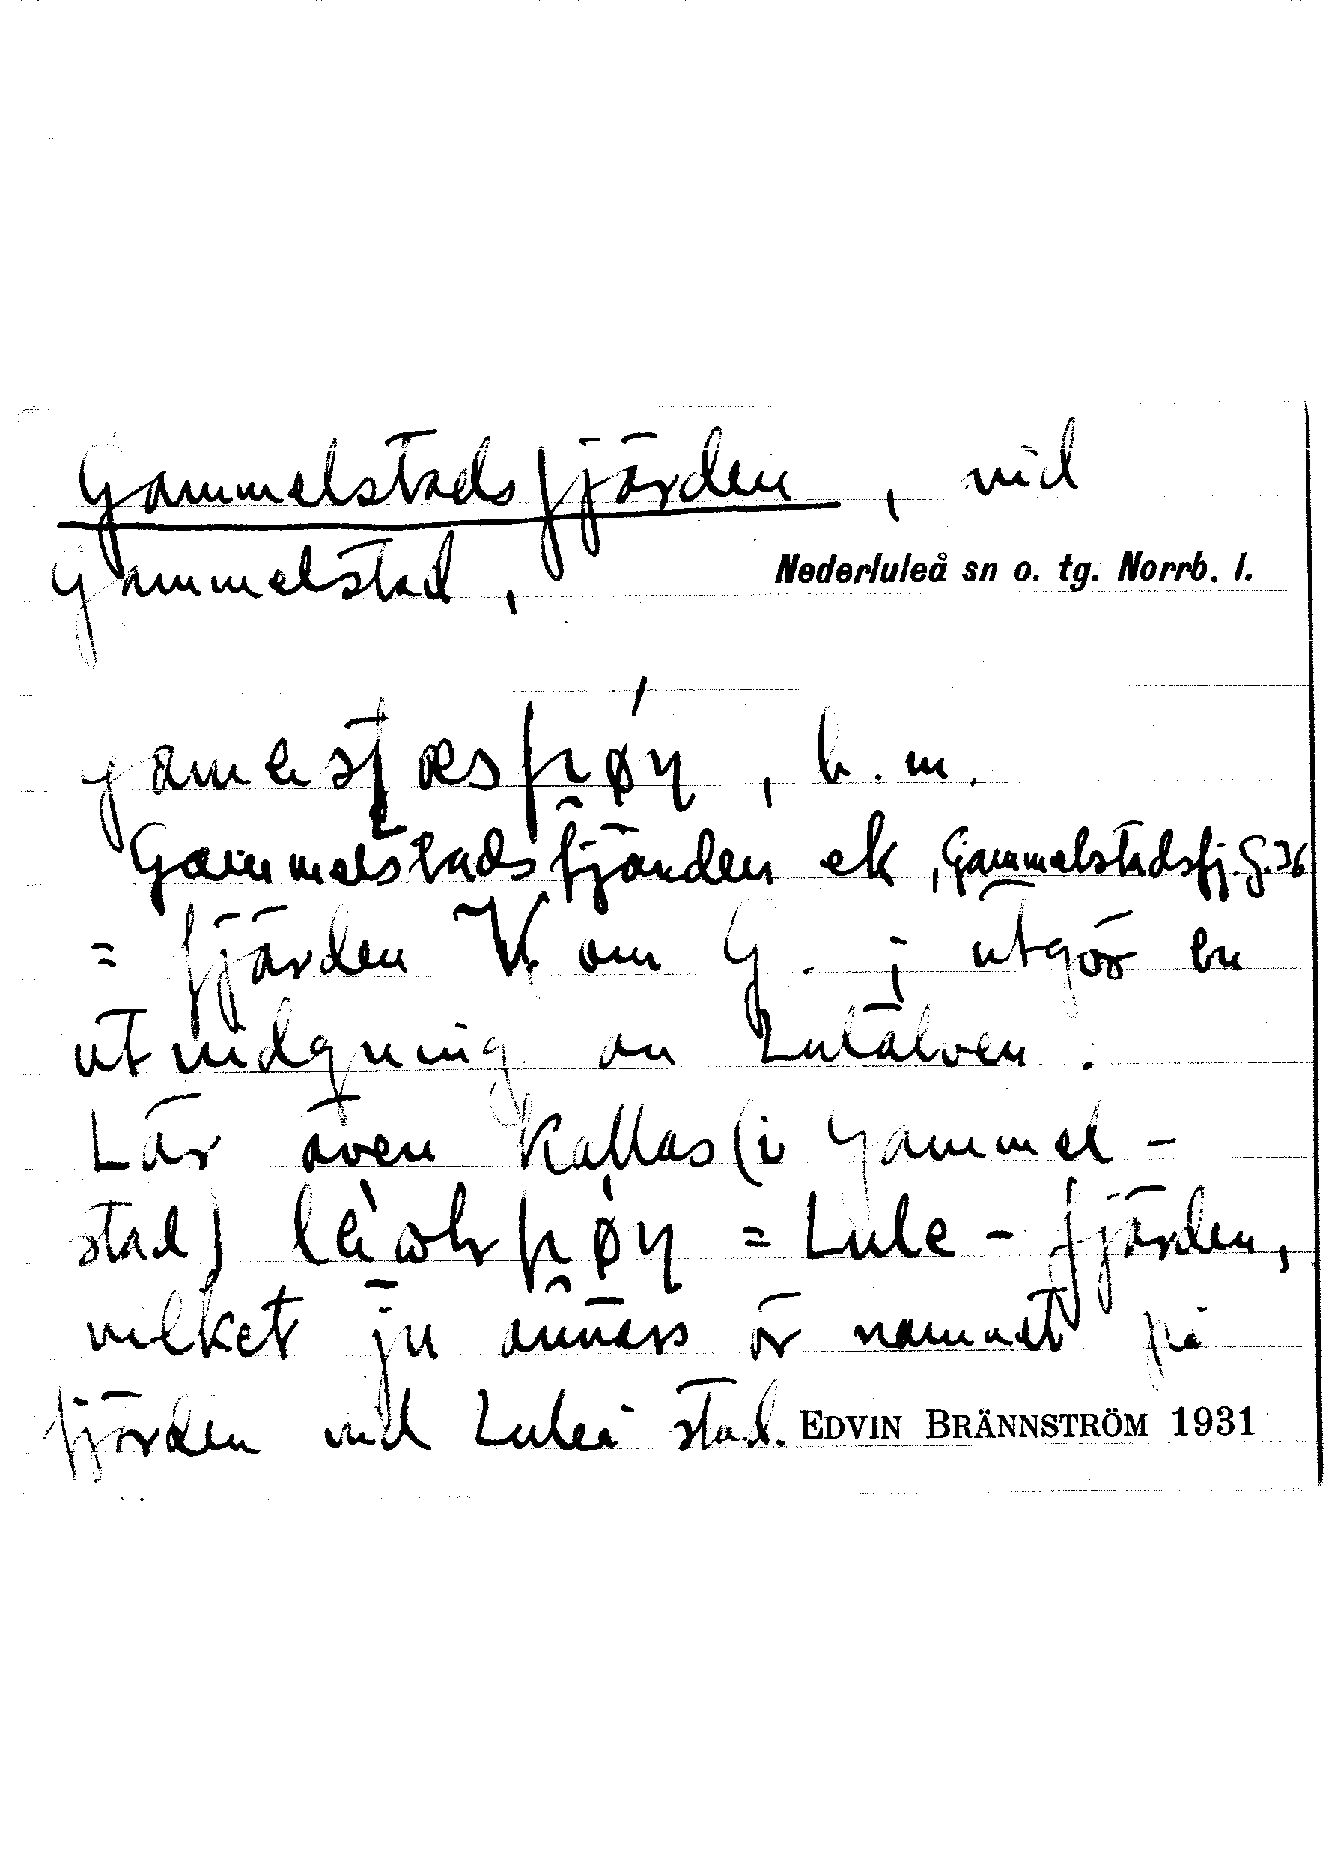 Gammelstadsfjärden, vid
Gammelstad,
Nederluleå sn o. tg. Norrb. l.
b. m.
Gammelstadsfjärden ek, Gammelstadsfj. G. 36
= fjärden V om G. ; utgör en
utvidgning av Luleälven.
Lär även kallas (i Gammel-
stad) = Lule-fjärden,
vilket ju annars är namnet på
fjärden vid Luleå stad.
EDVIN BRÄNNSTRÖM 1931